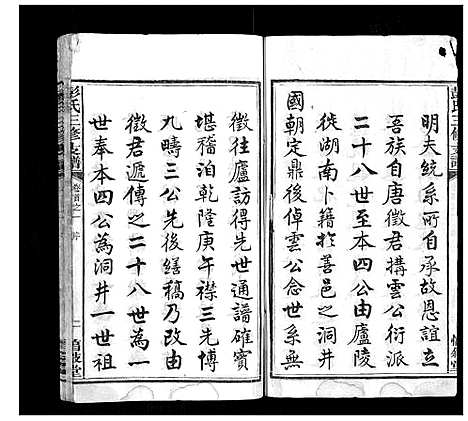 明夫統系所自承故恩誼立
吾族自唐徵君搆雲公衍派
二十八世至本四公由廬陵
徙湖南卜籍於善邑之洞井
國朝定鼎後倬雲公念世系無
徵往廬訪世通譜確實
堪稽泊乾隆庚午襟三先慱
九疇三公先後繕稿乃改由
徵君遞傳之二十八世為一
世奉本四公為洞井一世祖
彭氏三修支譜
卷首之一